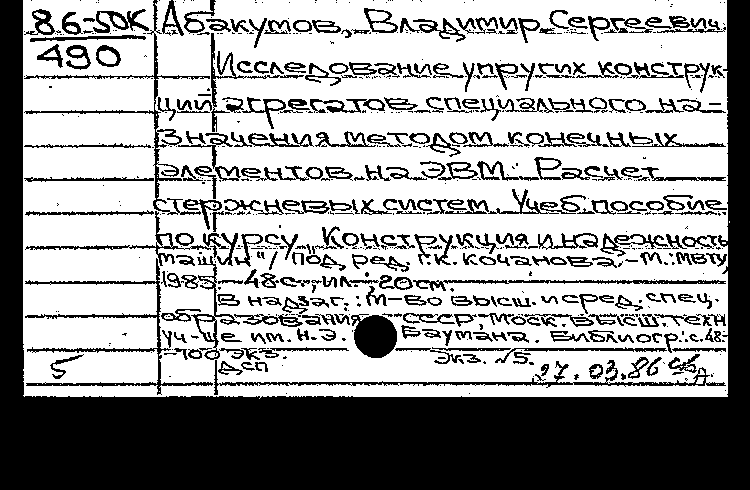 86-50К Абакумов, Владимир Сергеевич
490
Исследование упругих конструк-
ций агрегатов специального на-
значения методом конечных
элементов на ЭВМ. Расчет
стержневых систем. Учеб. пособие
по курсу "Конструкция и надежность
машин" / Под ред. Г.К. Кочанова. - М.: МВТУ,
1985. - 48 с., ил.; 20 см.
В надзаг.: М-во высш. и сред. спец.
образования СССР, Моск. высш. техн
уч-ще им. Н.Э. Баумана. Библиогр.: с. 48-
-100 экз.
5 Дсп Экз. №5. 27.03.86